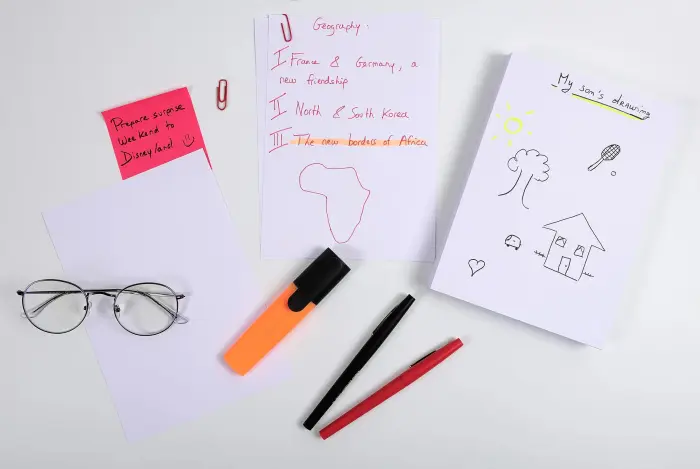 Prepare surprise
weekend to
Disneyland
Geography:
I France & Germany, a
new friendship
II North & South Korea
III The new borders of Africa
My son's drawing